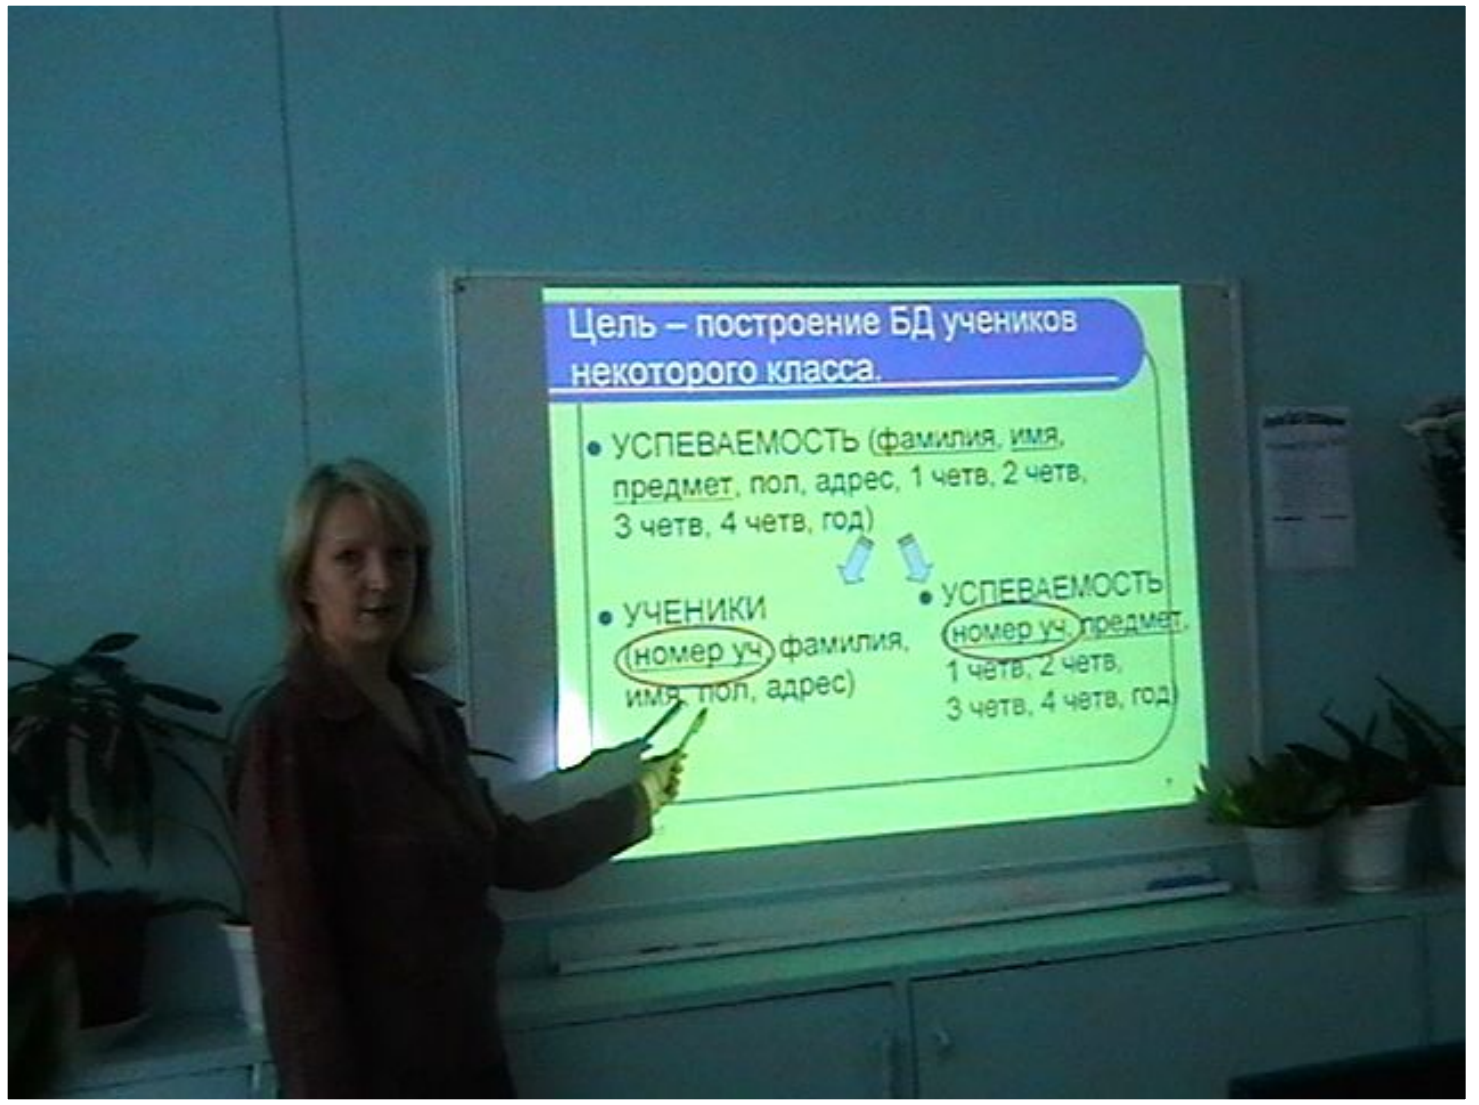 Цель – построение БД учеников
некоторого класса.
УСПЕВАЕМОСТЬ (фамилия, имя,
предмет, пол, адрес, 1 четв, 2 четв,
3 четв, 4 четв, год)
УЧЕНИКИ
(номер уч, фамилия,
имя, пол, адрес)
УСПЕВАЕМОСТЬ
(номер уч, предмет,
1 четв, 2 четв,
3 четв, 4 четв, год)